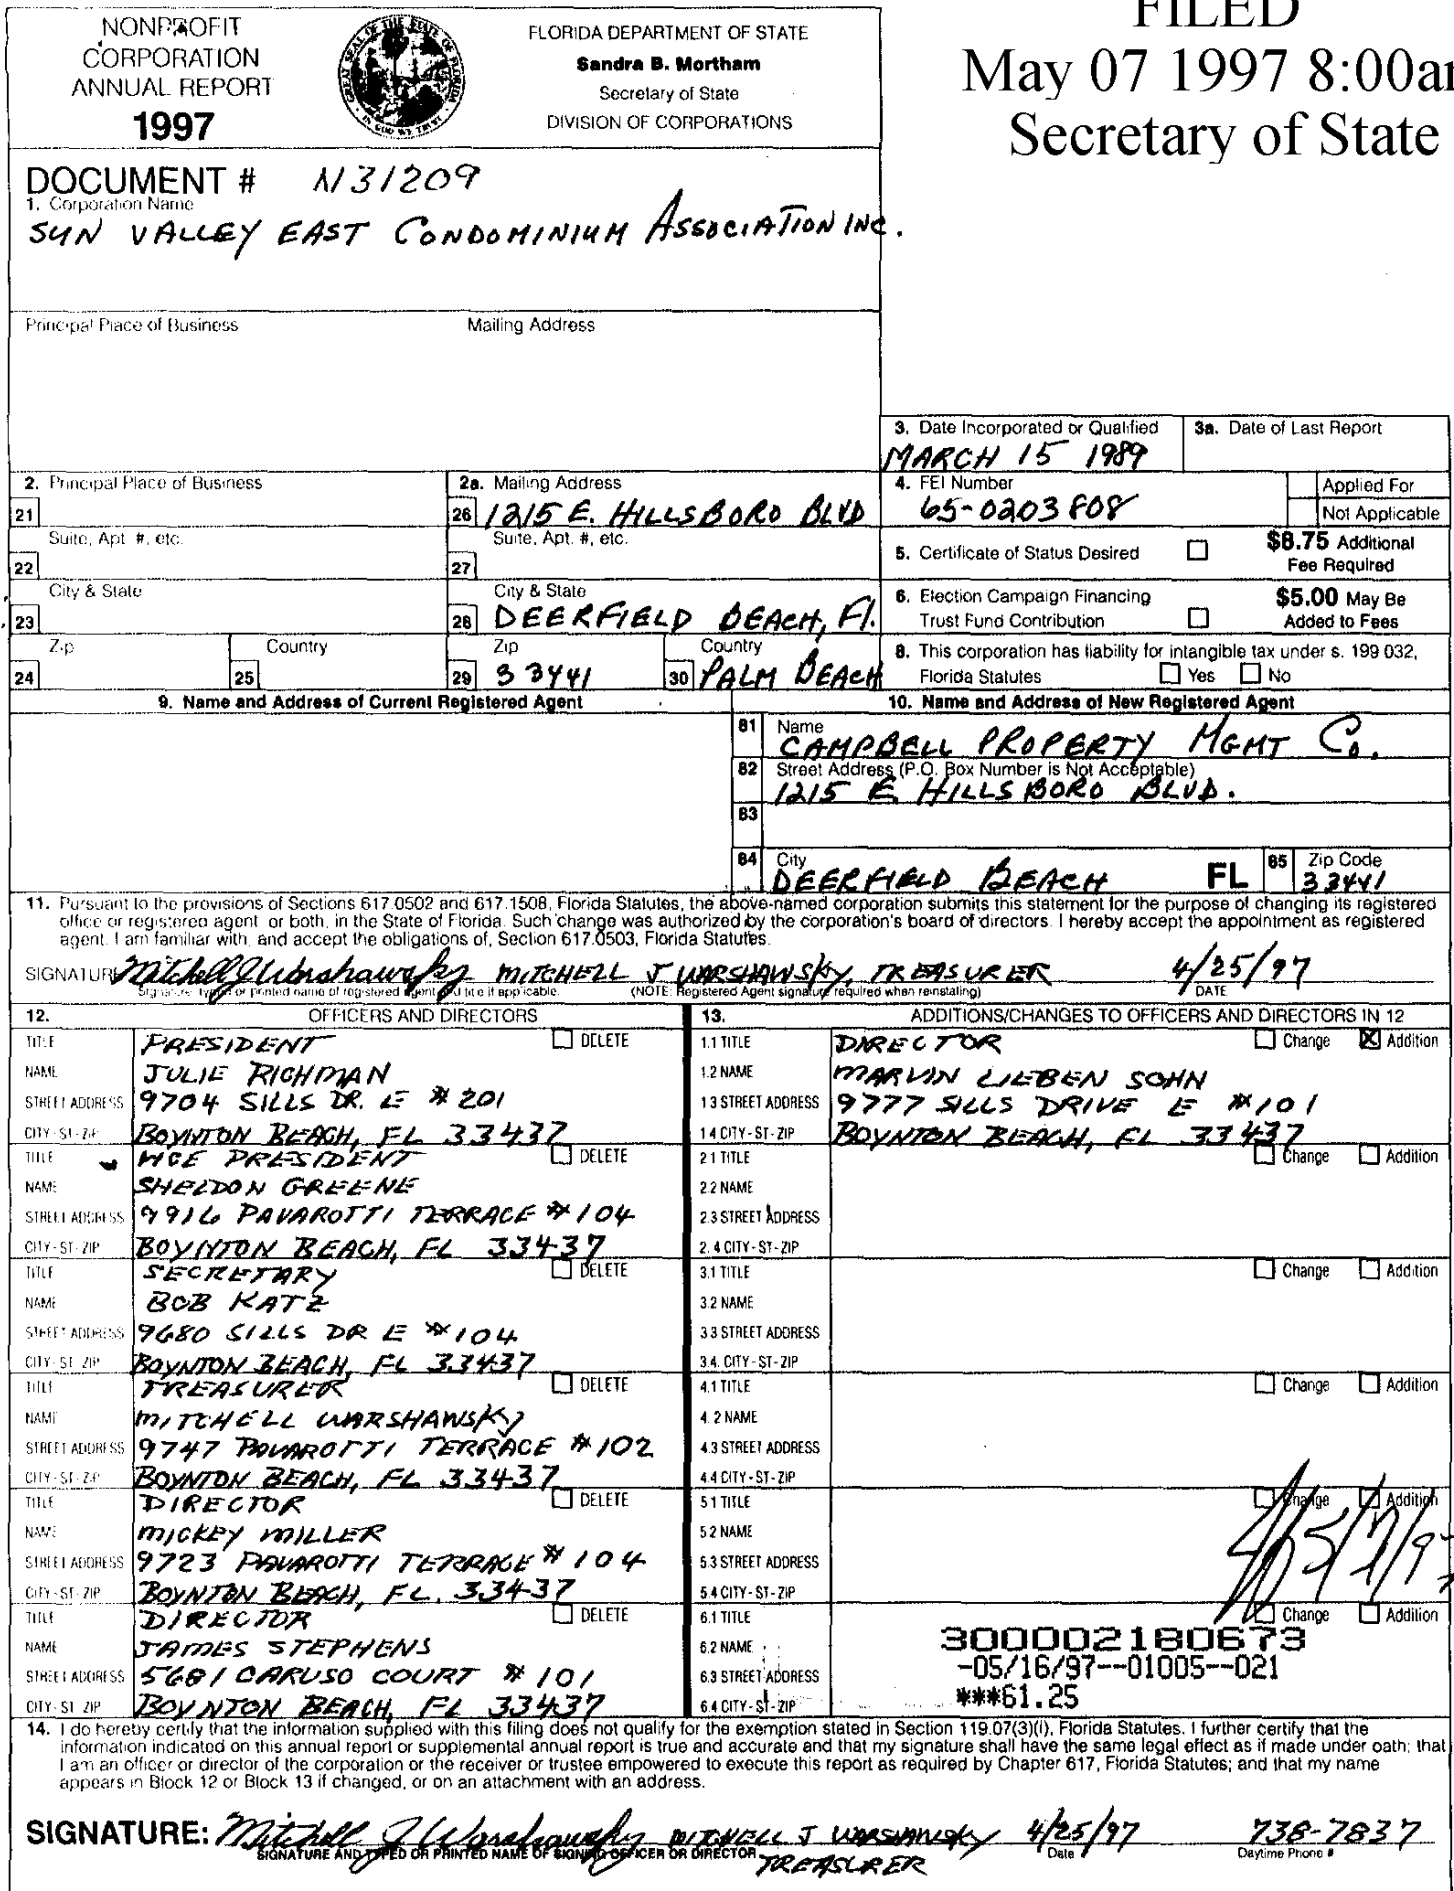 NONPROFIT
CORPORATION
ANNUAL REPORT
1997
FLORIDA DEPARTMENT OF STATE
Sandra B. Mortham
Secretary of State
DIVISION OF CORPORATIONS
FILED
May 07 1997 8:00am
Secretary of State
DOCUMENT # N31209
1. Corporation Name
SUN VALLEY EAST CONDOMINIUM ASSOCIATION INC.
Principal Place of Business Mailing Address
3. Date Incorporated or Qualified
MARCH 15 1989
3a. Date of Last Report
2. Principal Place of Business
21
Suite, Apt #, etc.
22
City & State
23
Zip Country
24 25
2a. Mailing Address
26 1215 E. HILLSBORO BLVD
Suite, Apt. #, etc.
27
City & State
28 DEERFIELD BEACH, Fl.
Zip Country
29 33441 30 PALM BEACH
4. FEI Number
65-0203808
Applied For
Not Applicable
5. Certificate of Status Desired $8.75 Additional Fee Required
6. Election Campaign Financing Trust Fund Contribution $5.00 May Be Added to Fees
8. This corporation has liability for intangible tax under s. 199 032,
Florida Statutes Yes No
9. Name and Address of Current Registered Agent
10. Name and Address of New Registered Agent
81 Name
CAMPBELL PROPERTY MGMT Co.
82 Street Address (P.O. Box Number is Not Acceptable)
1215 E HILLSBORO BLVD.
83
84 City
DEERFIELD BEACH FL
85 Zip Code
33441
11. Pursuant to the provisions of Sections 617.0502 and 617.1508, Florida Statutes, the above-named corporation submits this statement for the purpose of changing its registered
office or registered agent or both, in the State of Florida. Such change was authorized by the corporation's board of directors. I hereby accept the appointment as registered
agent. I am familiar with, and accept the obligations of, Section 617.0503, Florida Statutes.
SIGNATURE Mitchell J Warshawsky MITCHELL J WARSHAWSKY, TREASURER 4/25/97
Signature, typed or printed name of registered agent and title if applicable. (NOTE: Registered Agent signature required when reinstating) DATE
12. OFFICERS AND DIRECTORS
TITLE PRESIDENT DELETE
NAME JULIE RICHMAN
STREET ADDRESS 9704 SILLS DR. E # 201
CITY-ST-ZIP BOYNTON BEACH, FL 33437
TITLE VICE PRESIDENT DELETE
NAME SHELDON GREENE
STREET ADDRESS 9916 PAVAROTTI TERRACE # 104
CITY-ST-ZIP BOYNTON BEACH, FL 33437
TITLE SECRETARY DELETE
NAME BOB KATZ
STREET ADDRESS 9680 SILLS DR E # 104
CITY-ST-ZIP BOYNTON BEACH, FL 33437
TITLE TREASURER DELETE
NAME MITCHELL WARSHAWSKY
STREET ADDRESS 9747 PAVAROTTI TERRACE # 102
CITY-ST-ZIP BOYNTON BEACH, FL 33437
TITLE DIRECTOR DELETE
NAME MICKEY MILLER
STREET ADDRESS 9723 PAVAROTTI TERRACE # 104
CITY-ST-ZIP BOYNTON BEACH, FL. 33437
TITLE DIRECTOR DELETE
NAME JAMES STEPHENS
STREET ADDRESS 5681 CARUSO COURT # 101
CITY-ST-ZIP BOYNTON BEACH, FL 33437
13. ADDITIONS/CHANGES TO OFFICERS AND DIRECTORS IN 12
1.1 TITLE DIRECTOR Change X Addition
1.2 NAME MARVIN LIEBEN SOHN
1 3 STREET ADDRESS 9777 SILLS DRIVE E #101
1 4 CITY-ST-ZIP BOYNTON BEACH, FL 33437
2 1 TITLE Change Addition
2.2 NAME
2.3 STREET ADDRESS
2.4 CITY-ST-ZIP
3.1 TITLE Change Addition
3.2 NAME
3 3 STREET ADDRESS
3.4. CITY-ST-ZIP
4.1 TITLE Change Addition
4.2 NAME
4.3 STREET ADDRESS
4.4 CITY-ST-ZIP
5 1 TITLE Change Addition
5.2 NAME
5.3 STREET ADDRESS
5.4 CITY-ST-ZIP
6.1 TITLE Change Addition
6.2 NAME
6.3 STREET ADDRESS
6.4 CITY-ST-ZIP
5/7/97
300002180673
-05/16/97--01005--021
***61.25
14. I do hereby certify that the information supplied with this filing does not qualify for the exemption stated in Section 119.07(3)(i), Florida Statutes. I further certify that the
information indicated on this annual report or supplemental annual report is true and accurate and that my signature shall have the same legal effect as if made under oath; that
I am an officer or director of the corporation or the receiver or trustee empowered to execute this report as required by Chapter 617, Florida Statutes; and that my name
appears in Block 12 or Block 13 if changed, or on an attachment with an address.
SIGNATURE: Mitchell J Warshawsky MITCHELL J WARSHAWSKY 4/25/97 738-7837
SIGNATURE AND TYPED OR PRINTED NAME OF SIGNING OFFICER OR DIRECTOR Date Daytime Phone #
TREASURER